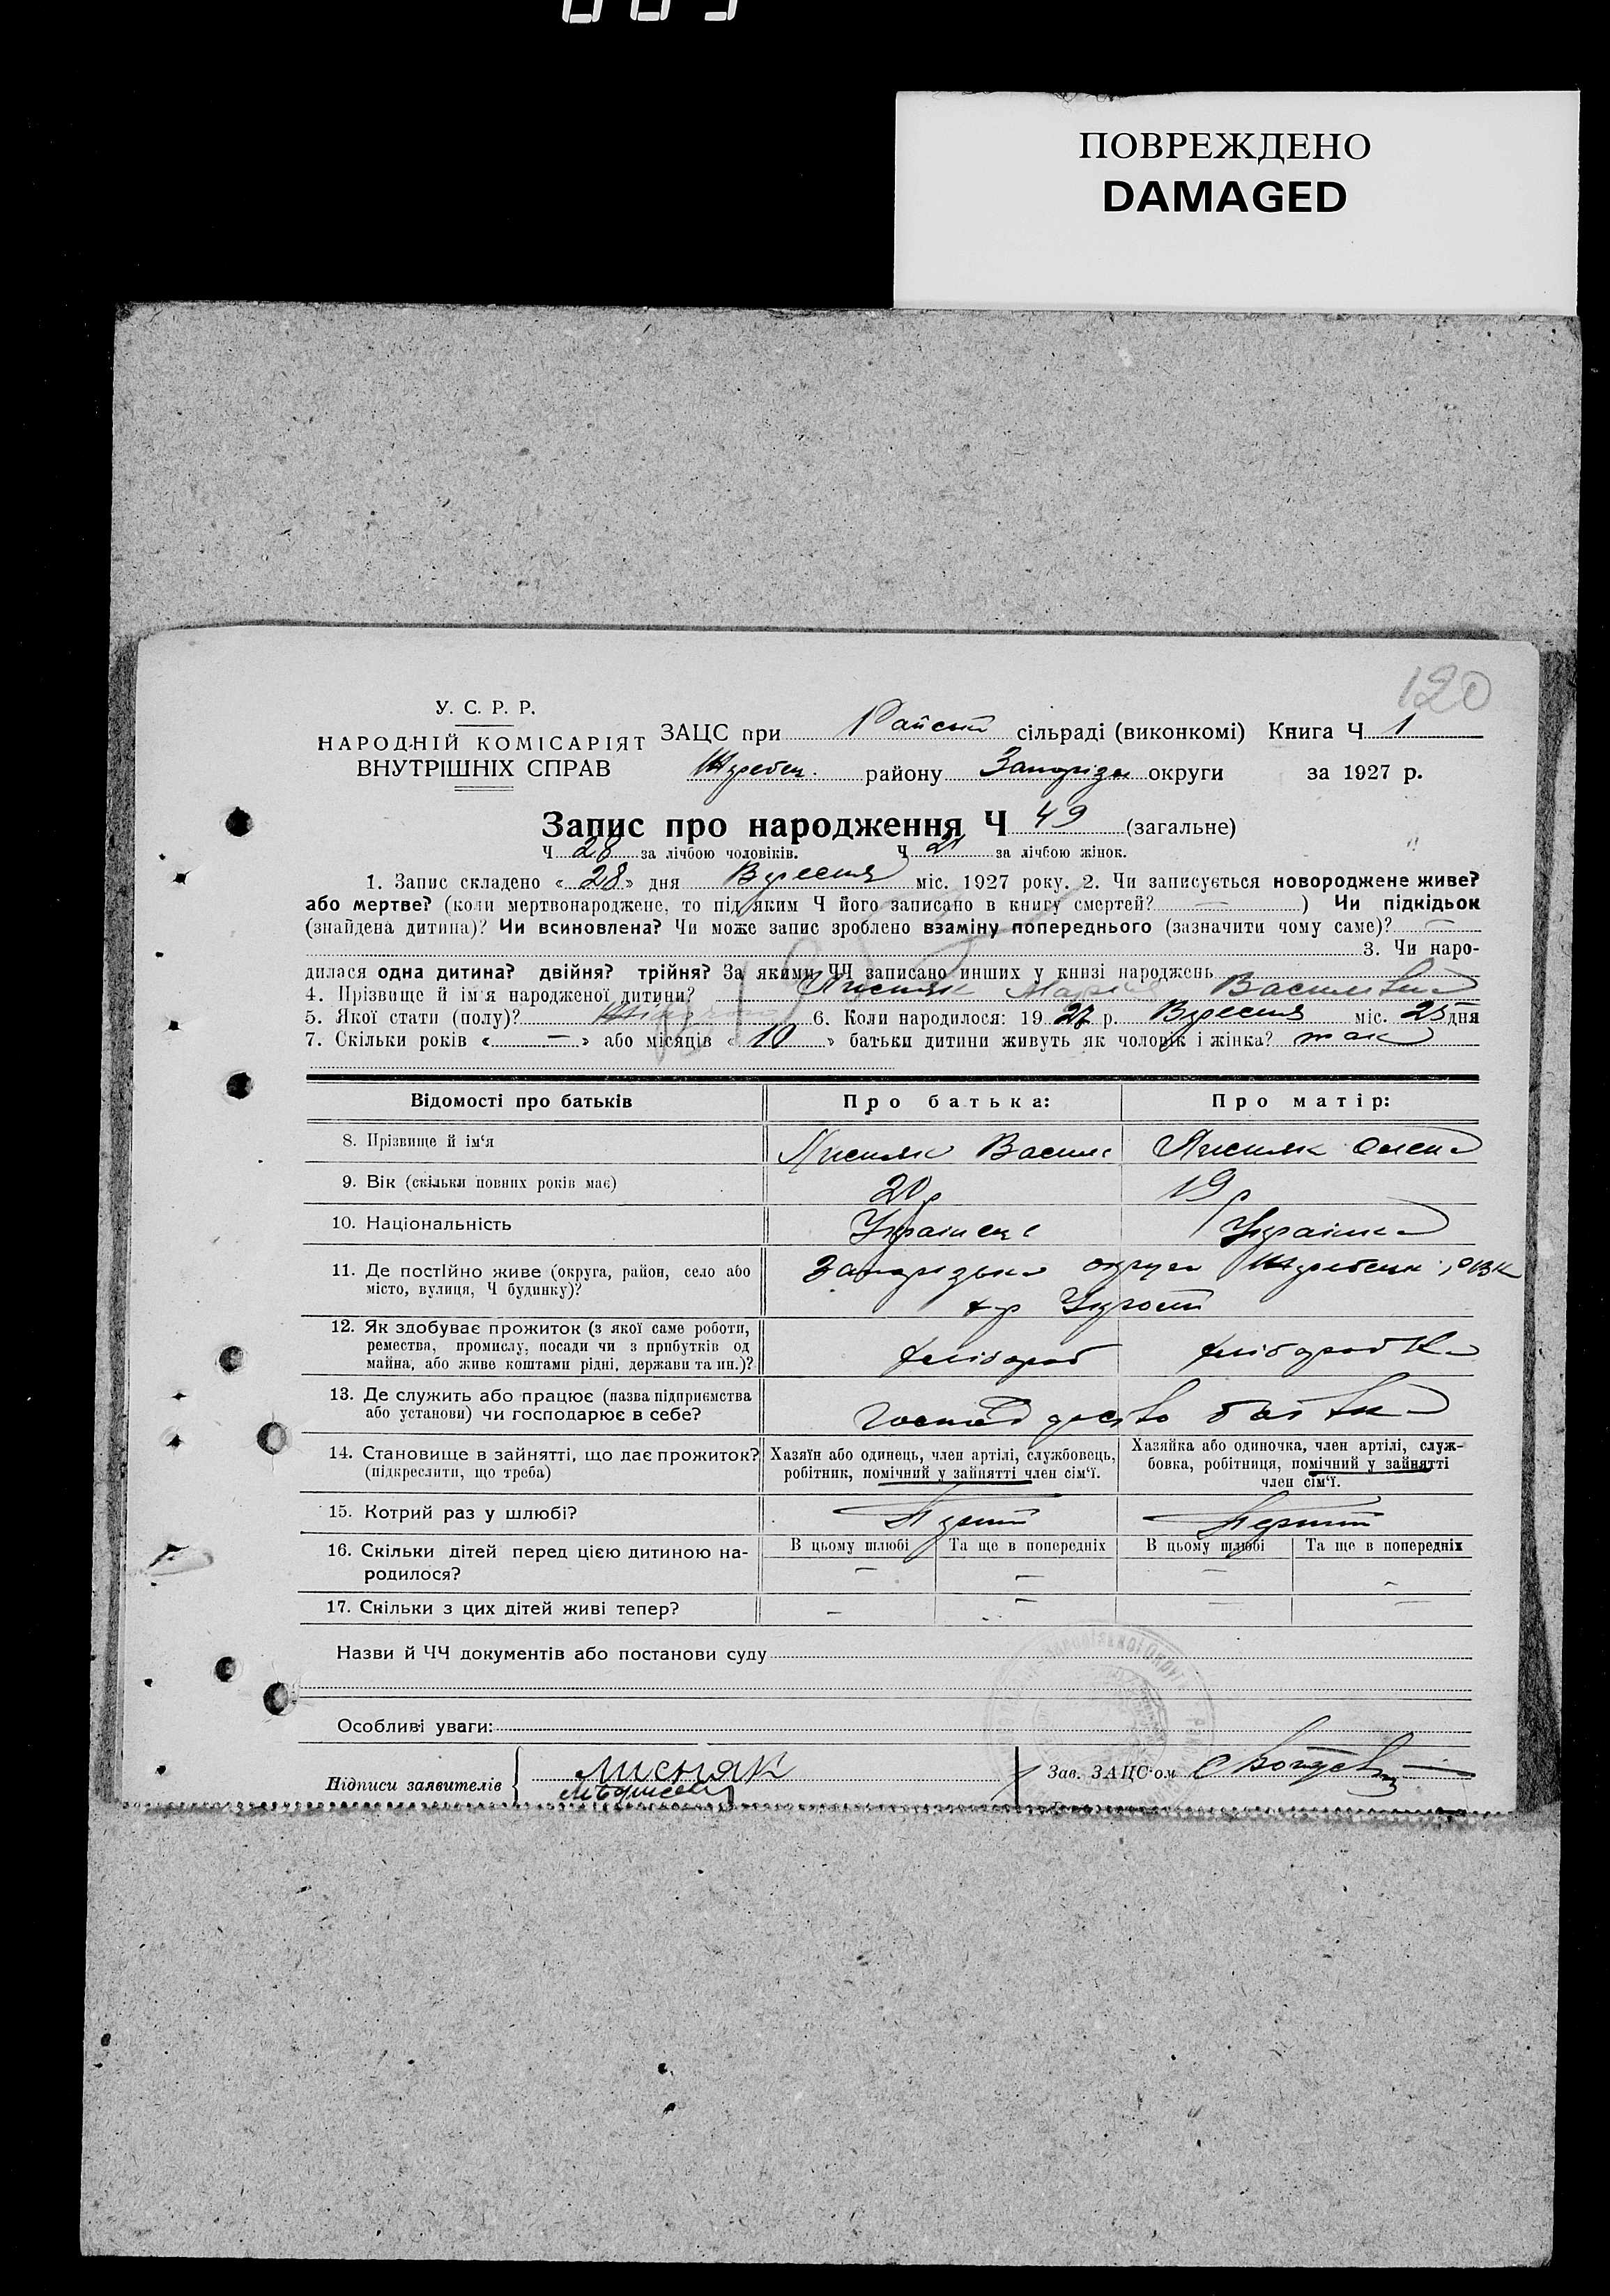 ПОВРЕЖДЕНО
DAMAGED
120
У. С. Р. Р.
НАРОДНІЙ КОМІСАРІЯТ
ВНУТРІШНІХ СПРАВ
ЗАЦС при Райській сільраді (виконкомі) Книга Ч 1
Жеребец. району Запорізьк округи за 1927 р.
Запис про народження Ч 49 (загальне)
Ч 28 за лічбою чоловіків. Ч 21 за лічбою жінок.
1. Запис складено «28» дня Вересня міс. 1927 року. 2. Чи записується новороджене живе?
або мертве? (коли мертвонароджене, то під яким Ч його записано в книгу смертей? — ) Чи підкідьок
(знайдена дитина)? Чи всиновлена? Чи може запис зроблено взаміну попереднього (зазначити чому саме)? —
3. Чи наро-
дилася одна дитина? двійня? трійня? За якими ЧЧ записано инших у книзі народжень
4. Прізвище й ім'я народженої дитини? Лисняк Марія Василівна
5. Якої стати (полу)? Жіночої 6. Коли народилося: 1927 р. Вересня міс. 25 дня
7. Скільки років « — » або місяців « 10 » батьки дитини живуть як чоловік і жінка? так
Відомості про батьків Про батька: Про матір:
8. Прізвище й ім'я Лисняк Василь Лисняк Олена
9. Вік (скільки повних років має) 20 р 19 р
10. Національність Українець Українка
11. Де постійно живе (округа, район, село або
місто, вулиця, Ч будинку)? Запорізька округа Жеребецьк
12. Як здобуває прожиток (з якої саме роботи,
ремества, промислу, посади чи з прибутків од
майна, або живе коштами рідні, держави та ин.)? хлібороб хліборобка
13. Де служить або працює (назва підприємства
або установи) чи господарює в себе? господарство батька
14. Становище в зайнятті, що дає прожиток?
(підкреслити, що треба)
Хазяїн або одинець, член артілі, службовець,
робітник, помічний у зайнятті член сім'ї.
Хазяйка або одиночка, член артілі, служ-
бовка, робітниця, помічний у зайнятті
член сім'ї.
15. Котрий раз у шлюбі? Перший Перший
16. Скільки дітей перед цією дитиною на-
родилося?
В цьому шлюбі Та ще в попередніх В цьому шлюбі Та ще в попередніх
— — — —
17. Скільки з цих дітей живі тепер? — — — —
Назви й ЧЧ документів або постанови суду
Особливі уваги:
Підписи заявителів Лисняк
Зав. ЗАЦС'ом